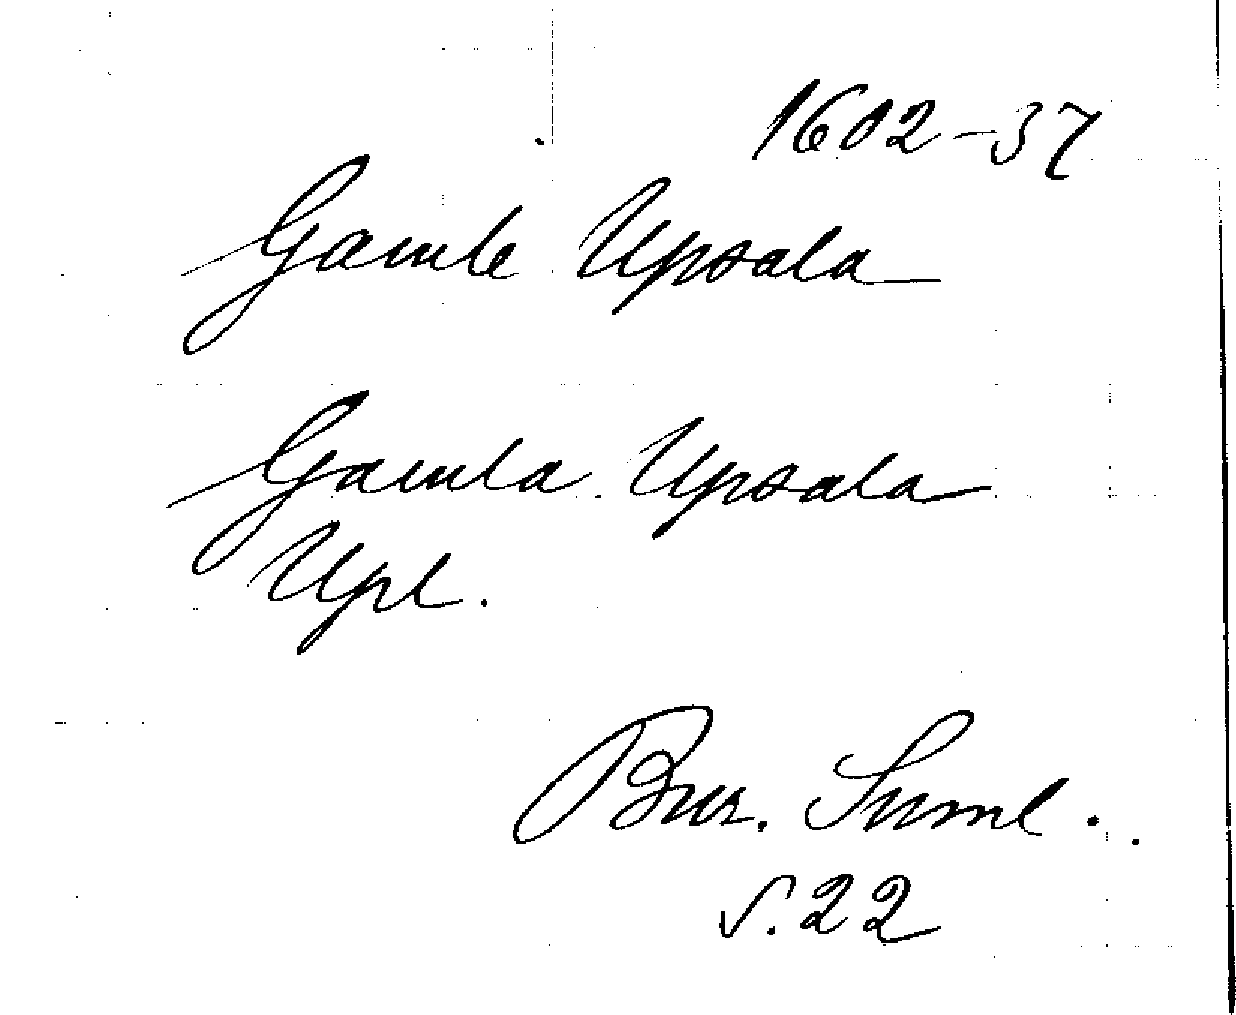 1602-37
Gamle Upsala
Gamla Upsala
Upl.
Bur. Suml.
s. 22